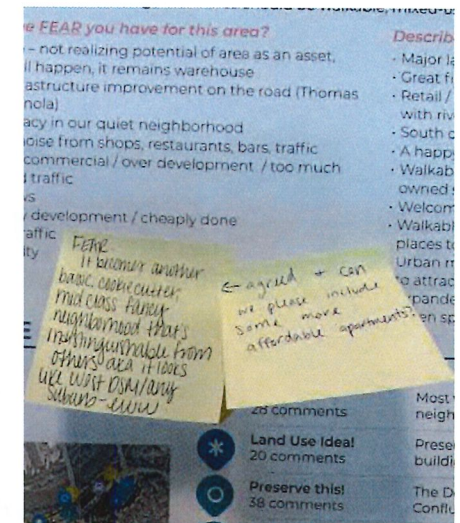 should be walkable, mixed-u
e FEAR you have for this area?
– not realizing potential of area as an asset,
ll happen, it remains warehouse
astructure improvement on the road (Thomas
nola)
acy in our quiet neighborhood
oise from shops, restaurants, bars, traffic
commercial / over development / too much
traffic
vs
development / cheaply done
affic
ity
Describ
• Major la
• Great fi
• Retail /
with riv
• South o
• A happ
• Walkab
owned s
• Welcom
• Walkabl
places to
Urban m
to attrac
xpande
en sp
FEAR
It becomes another
basic, cookie cutter,
mid class fancy
neighborhood that's
indistinguishable from
others aka it looks
like West DSM/any
suburb - eww
← agreed + can
we please include
some more
affordable apartments?
E
28 comments
Land Use Idea!
20 comments
Preserve this!
38 comments
Most
neigh
Prese
buildi
The D
Conflu